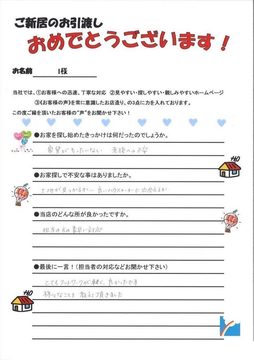 ご新居のお引渡し
おめでとうございます!
お名前 I様
当社では、①お客様への迅速、丁寧な対応 ②見やすい・探しやすい・親しみやすいホームページ
③《お客様の声》を常に意識したお店造り、の3点に力を入れております。
この度ご縁を頂いたお客様の"声"をお聞かせ下さい!
●お家を探し始めたきっかけは何だったのでしょうか。
家賃がもったいない 老後への不安
●お家探しで不安な事はありましたか。
土地が見つかるか
●当店のどんな所が良かったですか。
●最後に一言!(担当者の対応などお聞かせ下さい)
とてもフットワークが軽く、良かったです